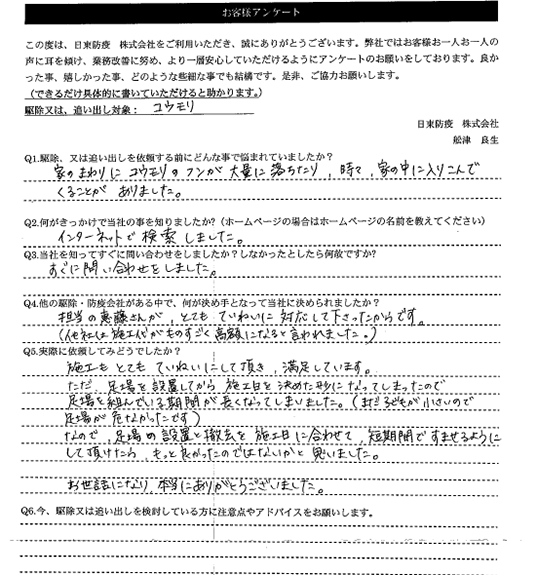 お客様アンケート
この度は、日東防疫 株式会社をご利用いただき、誠にありがとうございます。弊社ではお客様お一人お一人の
声に耳を傾け、業務改善に努め、より一層安心していただけるようにアンケートのお願いをしております。良か
った事、嬉しかった事、どのような些細な事でも結構です。是非、ご協力お願いします。
（できるだけ具体的に書いていただけると助かります。）
駆除又は、追い出し対象： コウモリ
日東防疫 株式会社
舩津 良生
Q1.駆除、又は追い出しを依頼する前にどんな事で悩まれていましたか？
家のまわりに コウモリのフンが 大量に落ちたり、時々、家の中に入りこんで
くることが ありました。
Q2.何がきっかけで当社の事を知りましたか？（ホームページの場合はホームページの名前を教えてください）
インターネットで 検索しました。
Q3.当社を知ってすぐに問い合わせをしましたか？しなかったとしたら何故ですか？
すぐに問い合わせをしました。
Q4.他の駆除・防疫会社がある中で、何が決め手となって当社に決められましたか？
担当の恵藤さんが、とても ていねいに 対応して下さったからです。
（他社は施工代がものすごく高額になると言われました。）
Q5.実際に依頼してみどうでしたか？
施工も とても ていねいにして頂き、満足しています。
ただ、足場を設置してから 施工日を決めた形になってしまったので
足場を組んでいる期間が長くなってしまいました。（まだ子どもが小さいので
足場が危なかったです）
なので、足場の設置と撤去を 施工日に合わせて、短期間ですませるように
して頂けたら、もっと良かったのではないかと思いました。
お世話になり、本当にありがとうございました。
Q6.今、駆除又は追い出しを検討している方に注意点やアドバイスをお願いします。